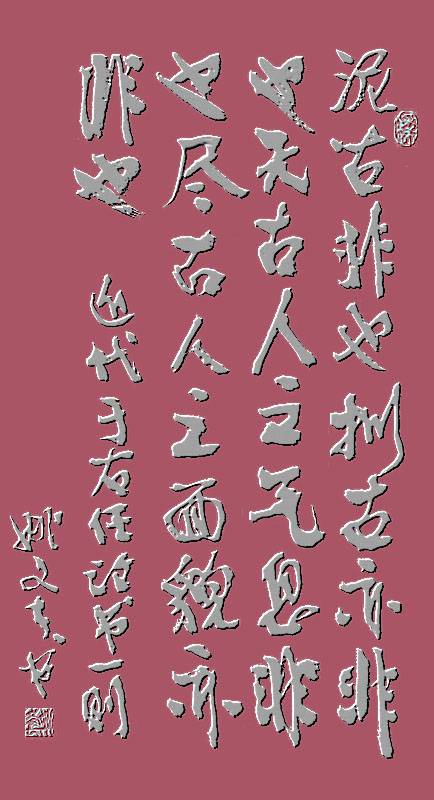 泥古非也拟古亦非
也无古人之气息非
也尽古人之面貌亦
非也 近代于右任论书一则